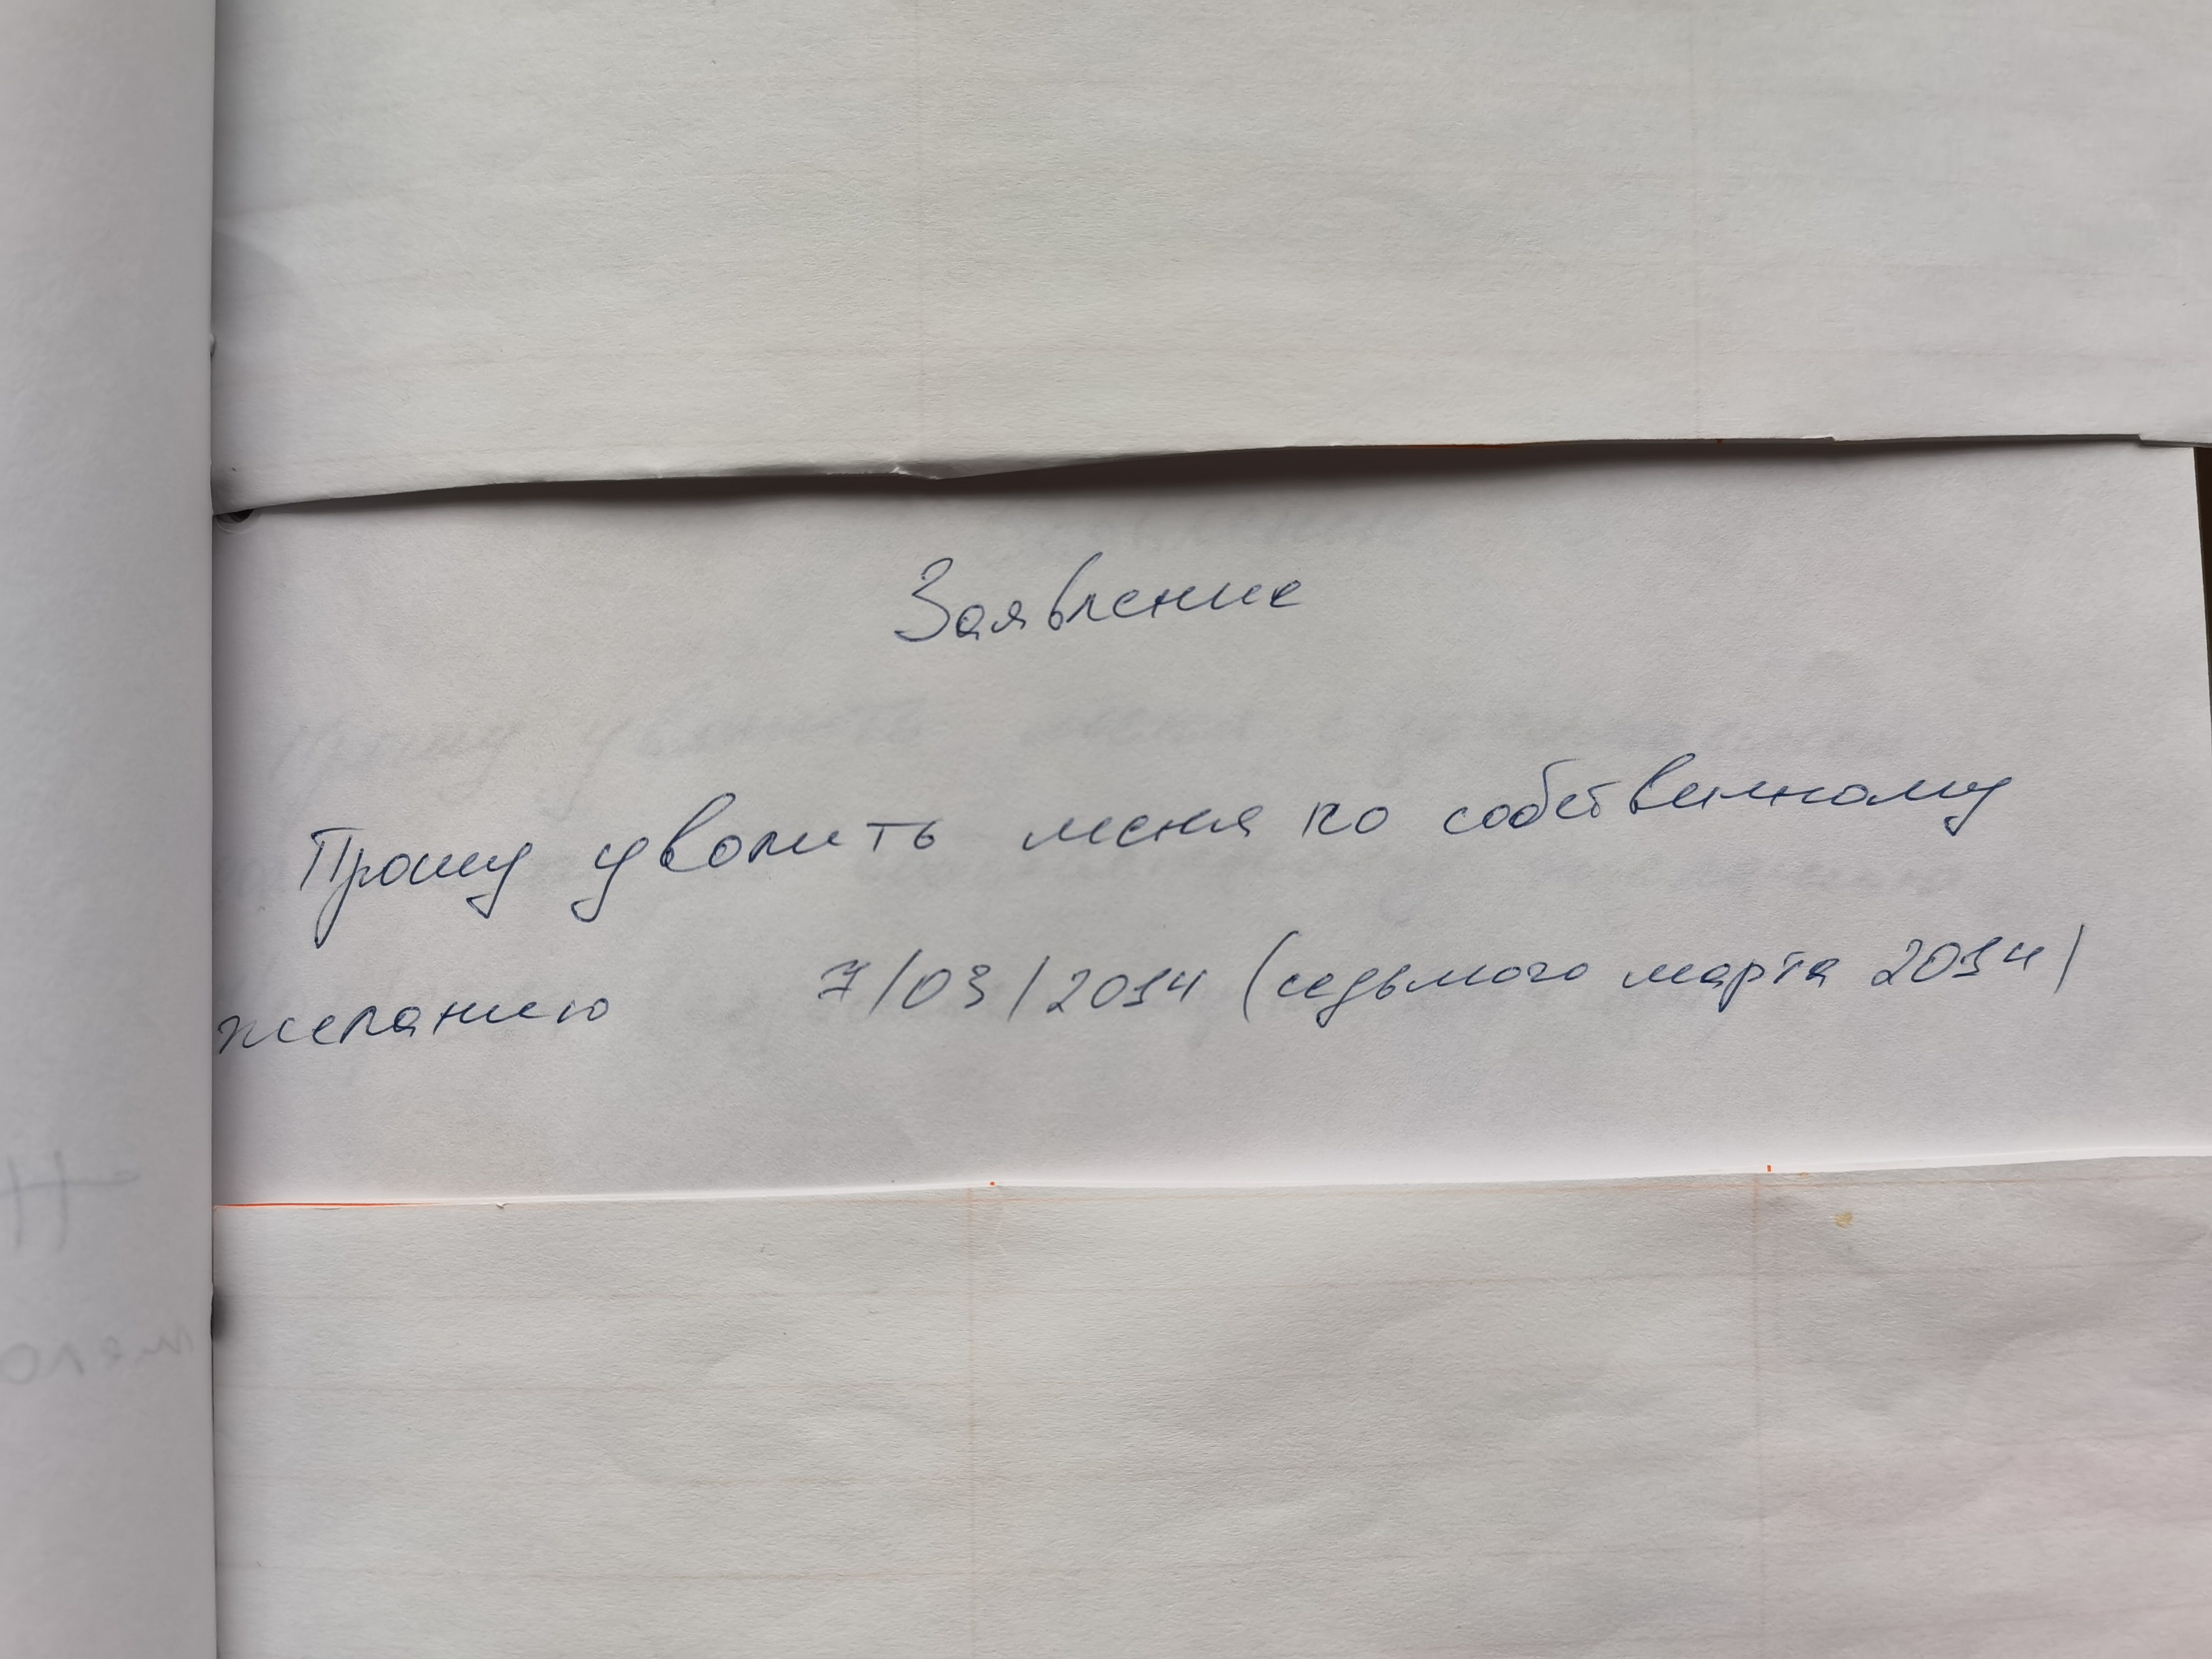 Заявление
Прошу уволить меня по собственному
желанию 7/03/2014 (седьмого марта 2014)